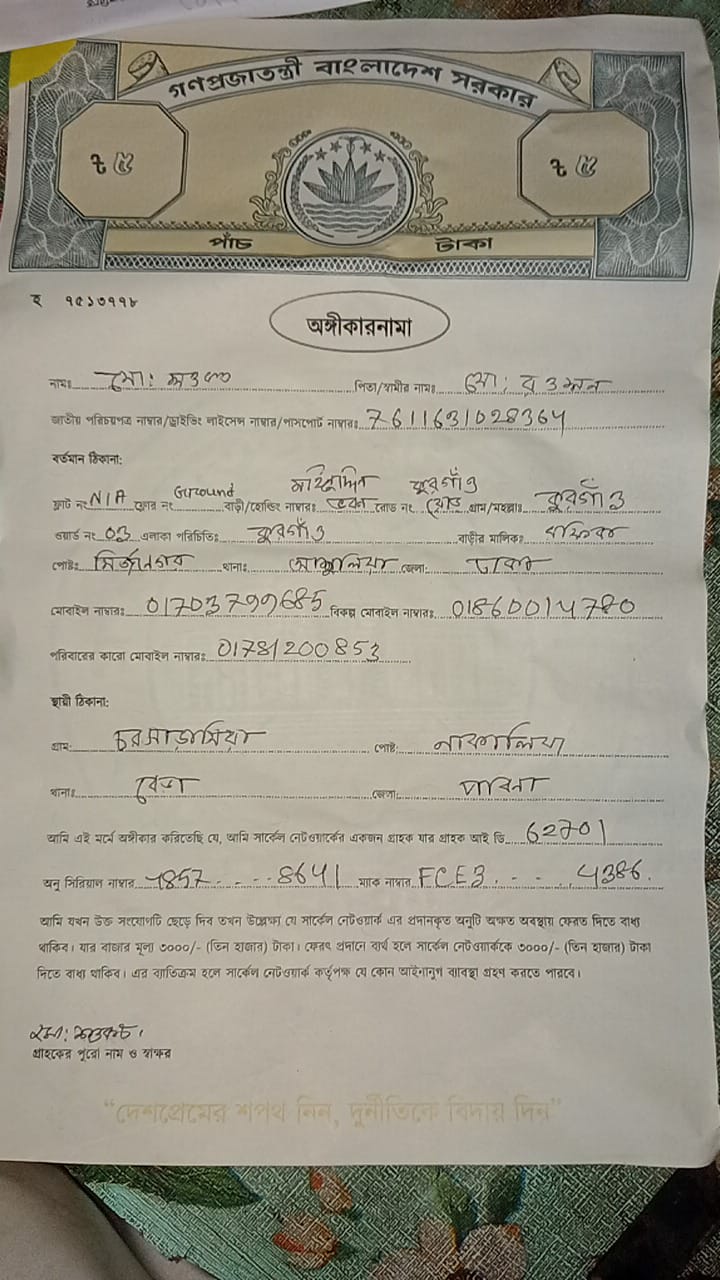 গণপ্রজাতন্ত্রী বাংলাদেশ সরকার
৳ ৫ ৳ ৫
পাঁচ টাকা
হ ৭৫১৩৭৭৮
অঙ্গীকারনামা
নামঃ মো: শওকত পিতা/স্বামীর নামঃ মো: রওশন
জাতীয় পরিচয়পত্র নাম্বার/ড্রাইভিং লাইসেন্স নাম্বার/পাসপোর্ট নাম্বারঃ 7611631028364
বর্তমান ঠিকানা:
ফ্লাট নং N/A ফ্লোর নং Ground বাড়ী/হোল্ডিং নাম্বারঃ ভবন রোড নং কুরগাঁও রোড গ্রাম/মহল্লাঃ কুরগাঁও
ওয়ার্ড নং 03 এলাকা পরিচিতিঃ কুরগাঁও বাড়ীর মালিকঃ
পোষ্টঃ মির্জানগর থানাঃ আশুলিয়া জেলা: ঢাকা
মোবাইল নাম্বারঃ 01703799685 বিকল্প মোবাইল নাম্বারঃ 01860014780
পরিবারের কারো মোবাইল নাম্বারঃ 01781200853
স্থায়ী ঠিকানা:
গ্রাম: চরসাড়াসিয়া পোষ্ট: নাকালিয়া
থানাঃ বেড়া জেলা: পাবনা
আমি এই মর্মে অঙ্গীকার করিতেছি যে, আমি সার্কেল নেটওয়ার্কের একজন গ্রাহক যার গ্রাহক আই ডি 62701
অনু সিরিয়াল নাম্বার 1857 - - - - 8641 ম্যাক নাম্বার FCE3. - - . 4386.
আমি যখন উক্ত সংযোগটি ছেড়ে দিব তখন উল্লেক্ষ্য যে সার্কেল নেটওয়ার্ক এর প্রদানকৃত অনুটি অক্ষত অবস্থায় ফেরত দিতে বাধ্য
থাকিব। যার বাজার মূল্য ৩০০০/- (তিন হাজার) টাকা। ফেরৎ প্রদানে ব্যর্থ হলে সার্কেল নেটওয়ার্ককে ৩০০০/- (তিন হাজার) টাকা
দিতে বাধ্য থাকিব। এর ব্যতিক্রম হলে সার্কেল নেটওয়ার্ক কর্তৃপক্ষ যে কোন আইনানুগ ব্যাবস্থা গ্রহণ করতে পারবে।
মো: শওকত
গ্রাহকের পুরো নাম ও স্বাক্ষর
"দেশপ্রেমের শপথ নিন, দুর্নীতিকে বিদায় দিন"